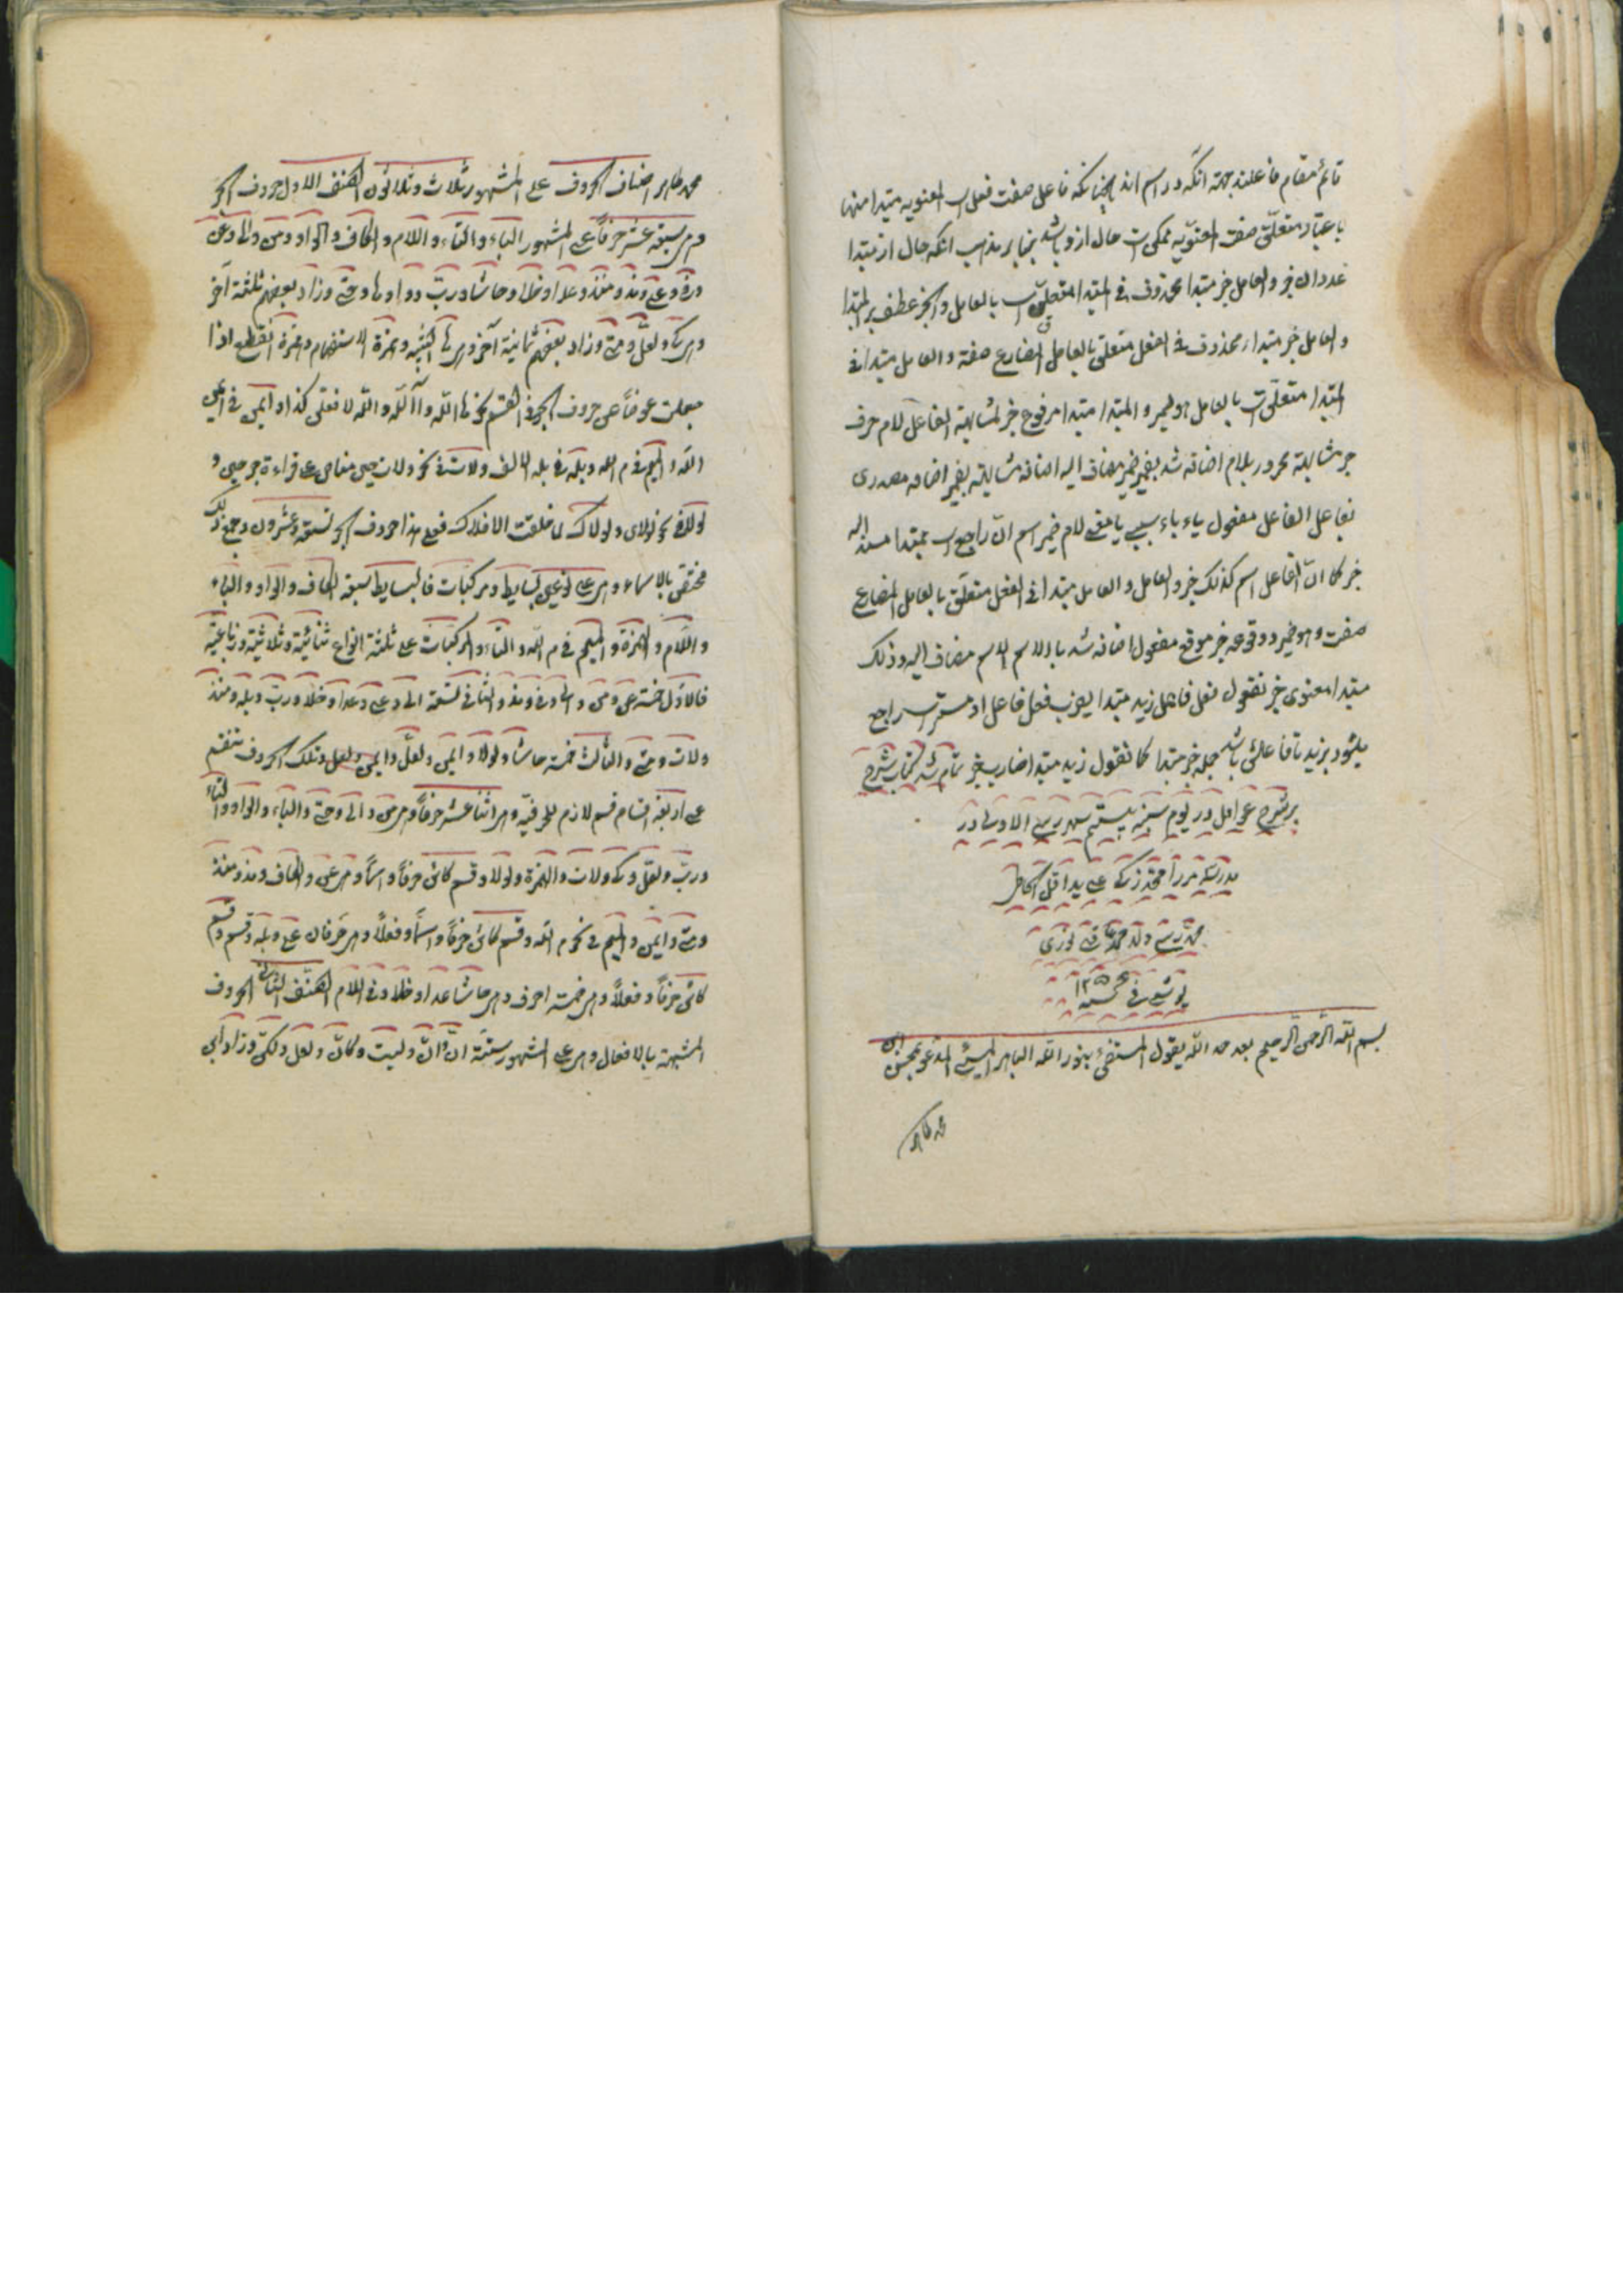 قائم مقام فاعلند بجهة آنكه در اسم اند چنانكه فاعل صفت فعل است المعنويه مبتدا منها
باعتبار متعلق صفت المعنويه ممكن است حال از او باشد بنابر مذهب آنكه حال از مبتدا
عددان خبر والعامل خبر مبتدا محذوف في المبتدا متعلق است بالعامل والخبر عطف بر المبتدا
والعامل خبر مبتداء محذوف في الفعل متعلق بالعامل المضارع صفة والعامل مبتدا في
المبتدا متعلق است بالعامل هو ضمير والمبتدا مبتدا مرفوع خبر لمشابهة الفاعل لام حرف
جر مشابهة مجرور بلام اضافه شد بضمير ضمير مضاف اليه اضافه مشابهة بضمير اضافه مصدرى
بفاعل الفاعل مفعول باء باء سببي يا بمعنى لام ضمير اسم ان راجع است بمبتدا مسند اليه
خبر كما ان الفاعل اسم كذلك خبر والعامل والعامل مبتدا في الفعل متعلق بالعامل المضارع
صفت وهو ضمير ووقوعه خبر موقع مفعول اضافه شد با والاسم الاسم مضاف اليه وذلك
مبتدا معنوى خبر نقول فعل فاعل زيد مبتدا يضرب فعل فاعل او مستتر است راجع
ميشود بزيد تا فاعلش باشد جمله خبر مبتدا كما نقول زيد مبتدا ضارب خبر تمام شد كتاب شرح
بر شرح عوامل در يوم شنبه بيستم شهر ربيع الاول در
مدرسه مرزا محمد زكى على يد اقل الحاج
محمد ولد محمد
في سنه ١٢٥
بسم الله الرحمن الرحيم بعد حمد الله يقول المستضئ بنور الله الباهر المسيئ المدعو بمحسن ابن
محمد طاهر
محمد طاهر اصناف الحروف على المشهور ثلاث وثلاثون الصنف الاول حروف الجر
وهي سبعة عشر حرفاً على المشهور الباء والتاء واللام والكاف والواو ومن والى وعن
وفي وعلى ومذ ومنذ وعدا وخلا وحاشا ورب وواوها وحتى وزاد بعضهم ثلثة آخر
وهي كي ولعل ومتى وزاد بعضهم ثمانية آخر وهي ها التنبيه وهمزة الاستفهام وهمزة القطع اذا
جعلت عوضاً عن حروف الجر في القسم نحو ها الله وآ الله والله لافعلن كذا وايمن في ايمن
الله والميم في م الله وبله في بله الالف ولات في نحو ولات حين مناص على قراءة جر حين و
لولا في نحو لولاى ولولاك لما خلقت الافلاك فعلى هذا حروف الجر تسعة وعشرون وجميع ذلك
مختص بالاسماء وهي على نوعين بسايط ومركبات فالبسايط سبعة الكاف والواو والباء
واللام والهمزة والميم في م الله والتاء والمركبات على ثلثة انواع ثنائية وثلاثية ورباعية
فالاول خمسة عن ومن وكى وفي ومذ والثاني تسعة الى وعلى وعدا وخلا ورب وبله ومنذ
ولات ومتى والثالث خمسة حاشا ولولا وايمن ولعل وايمن ولعل وتلك الحروف تنقسم
على اربعة اقسام قسم لازم للحرفية وهي اثنا عشر حرفاً وهي من والى وحتى والباء والواو والتاء
ورب ولعل وكى ولات والهمزة ولولا وقسم كائن حرفاً واسماً وهي عن والكاف ومذ ومنذ
ومتى وايمن والميم في نحو م الله وقسم كائن حرفاً واسماً وفعلاً وهي حرفان على وبله وقسم
كائن حرفاً وفعلاً وهي خمسة احرف وهي حاشا عدا وخلا وفي واللام الصنف الثاني الحروف
المشبهة بالافعال وهي على المشهور ستة ان وان وليت وكان ولعل ولكن وزاد ابي